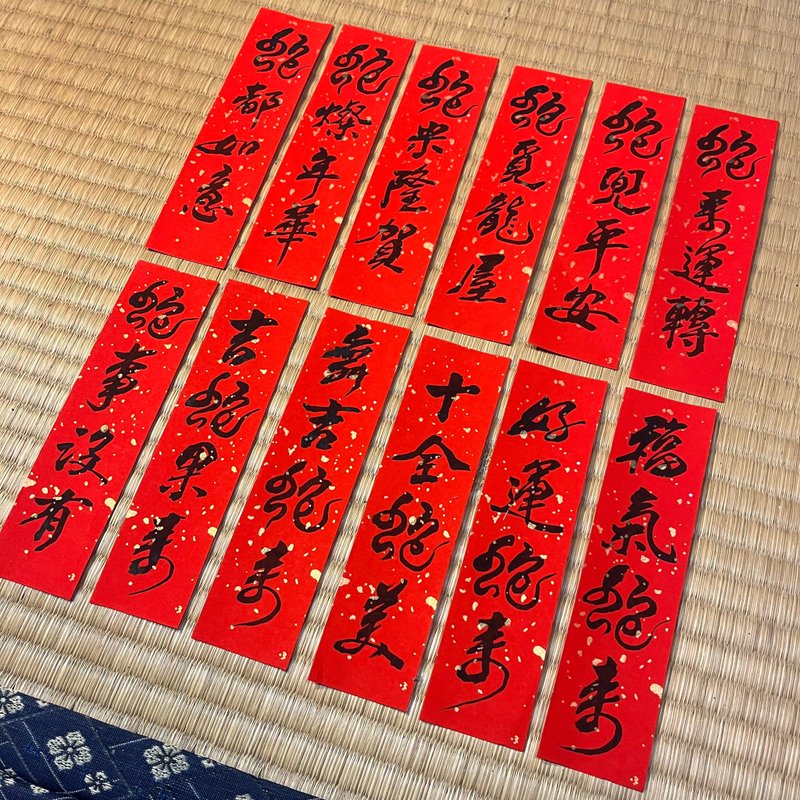 蛇來運轉
蛇兜平安
蛇覓龍屋
蛇米隆賀
蛇燦年華
蛇都如意
福氣蛇來
好運蛇來
十全蛇美
舞吉蛇來
吉蛇果來
蛇事沒有